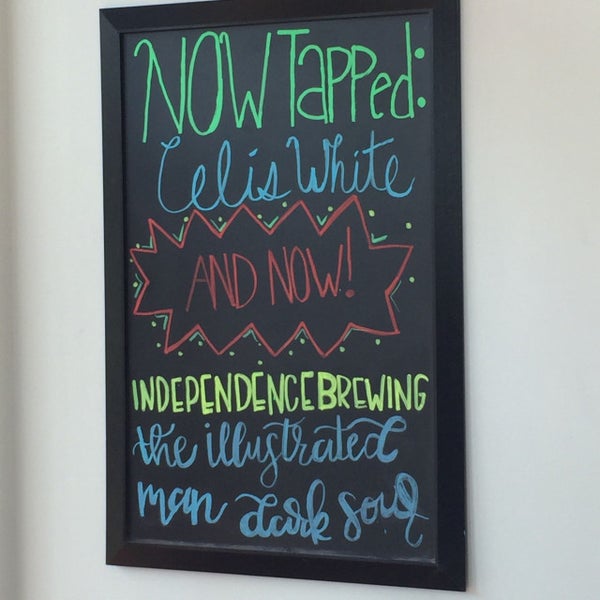 NOW TAPPed:
Celis White
AND NOW!
INDEPENDENCE BREWING
the illustrated
man dark soul